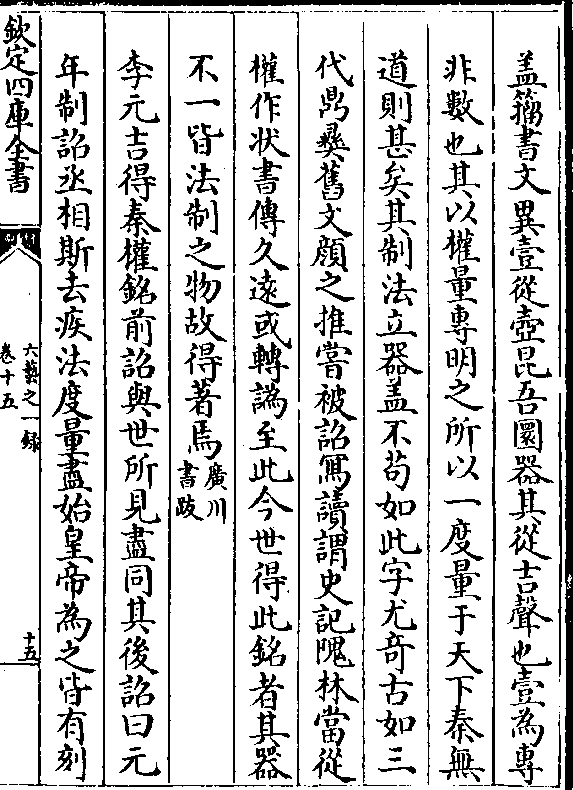 蓋籀書文異壹從壺昆吾圜器其從吉聲也壹為專
非數也其以權量專明之所以一度量于天下秦無
道則甚矣其制法立器蓋不苟如此字尤奇古如三
代鼎彝舊文顔之推嘗被詔寫讀謂史記隗林當從
權作狀書傳久遠或轉譌至此今世得此銘者其器
不一皆法制之物故得著焉廣川書跋
李元吉得秦權銘前詔與世所見盡同其後詔曰元
年制詔丞相斯去疾法度量盡始皇帝為之皆有刻
欽定四庫全書
六藝之一錄
卷十五
十五